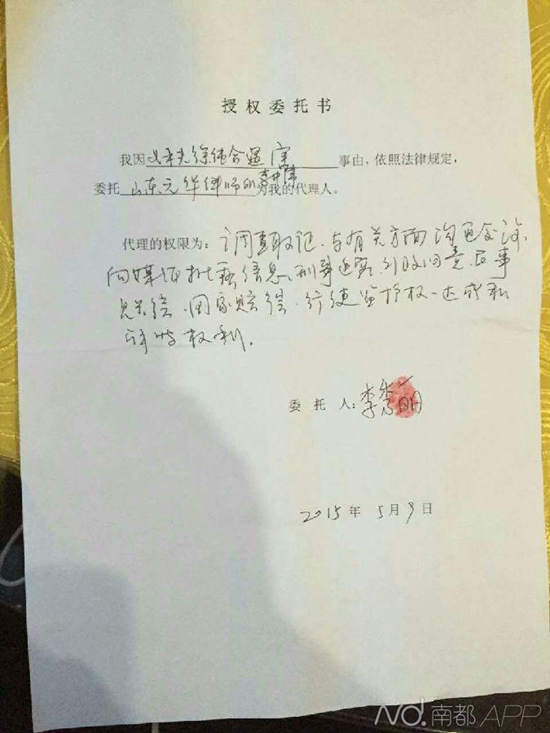 授权委托书
我因 丈夫徐纯合遇害 事由，依照法律规定，
李仲伟
委托 山东元华律师所 为我的代理人。
代理的权限为：调查取证、与有关方面沟通会谈、
向媒体批露信息、刑事追究、行政问责、民事
赔偿、国家赔偿、行使监护权、达成和
权利。
委 托 人：李秀
2015 年 5 月 9 日
Nd.南都APP